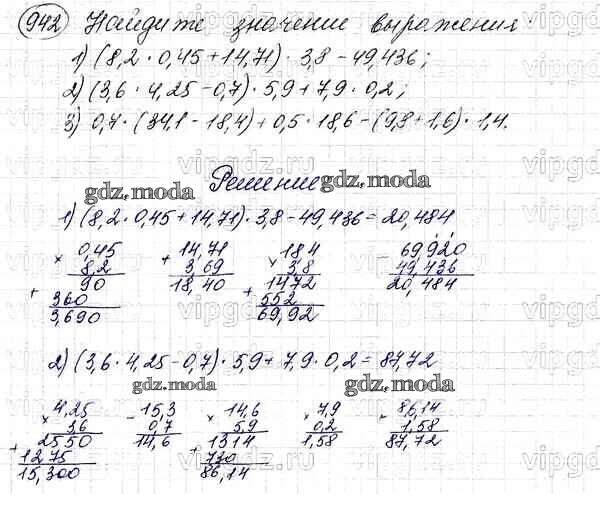 942 Найдите значение выражения
1) (8,2 · 0,45 + 14,71) · 3,8 - 49,436;
2) (3,6 · 4,25 - 0,7) · 5,9 + 7,9 · 0,2;
3) 0,7 · (34,1 - 18,4) + 0,5 · 18,6 - (9,8 + 1,6) · 1,4.
Решение
gdz.moda gdz.moda
1) (8,2 · 0,45 + 14,71) · 3,8 - 49,436 = 20,484
× 0,45 + 14,71 × 18,4 69,920
8,2 3,69 3,8 49,436
90 18,40 1472 20,484
+ 360 + 552
3,690 69,92
2) (3,6 · 4,25 - 0,7) · 5,9 + 7,9 · 0,2 = 87,72
gdz.moda gdz.moda
× 4,25 - 15,3 × 14,6 × 7,9 × 86,14
3,6 0,7 5,9 0,2 1,58
2550 14,6 1314 1,58 87,72
+ 1275 + 730
15,300 86,14